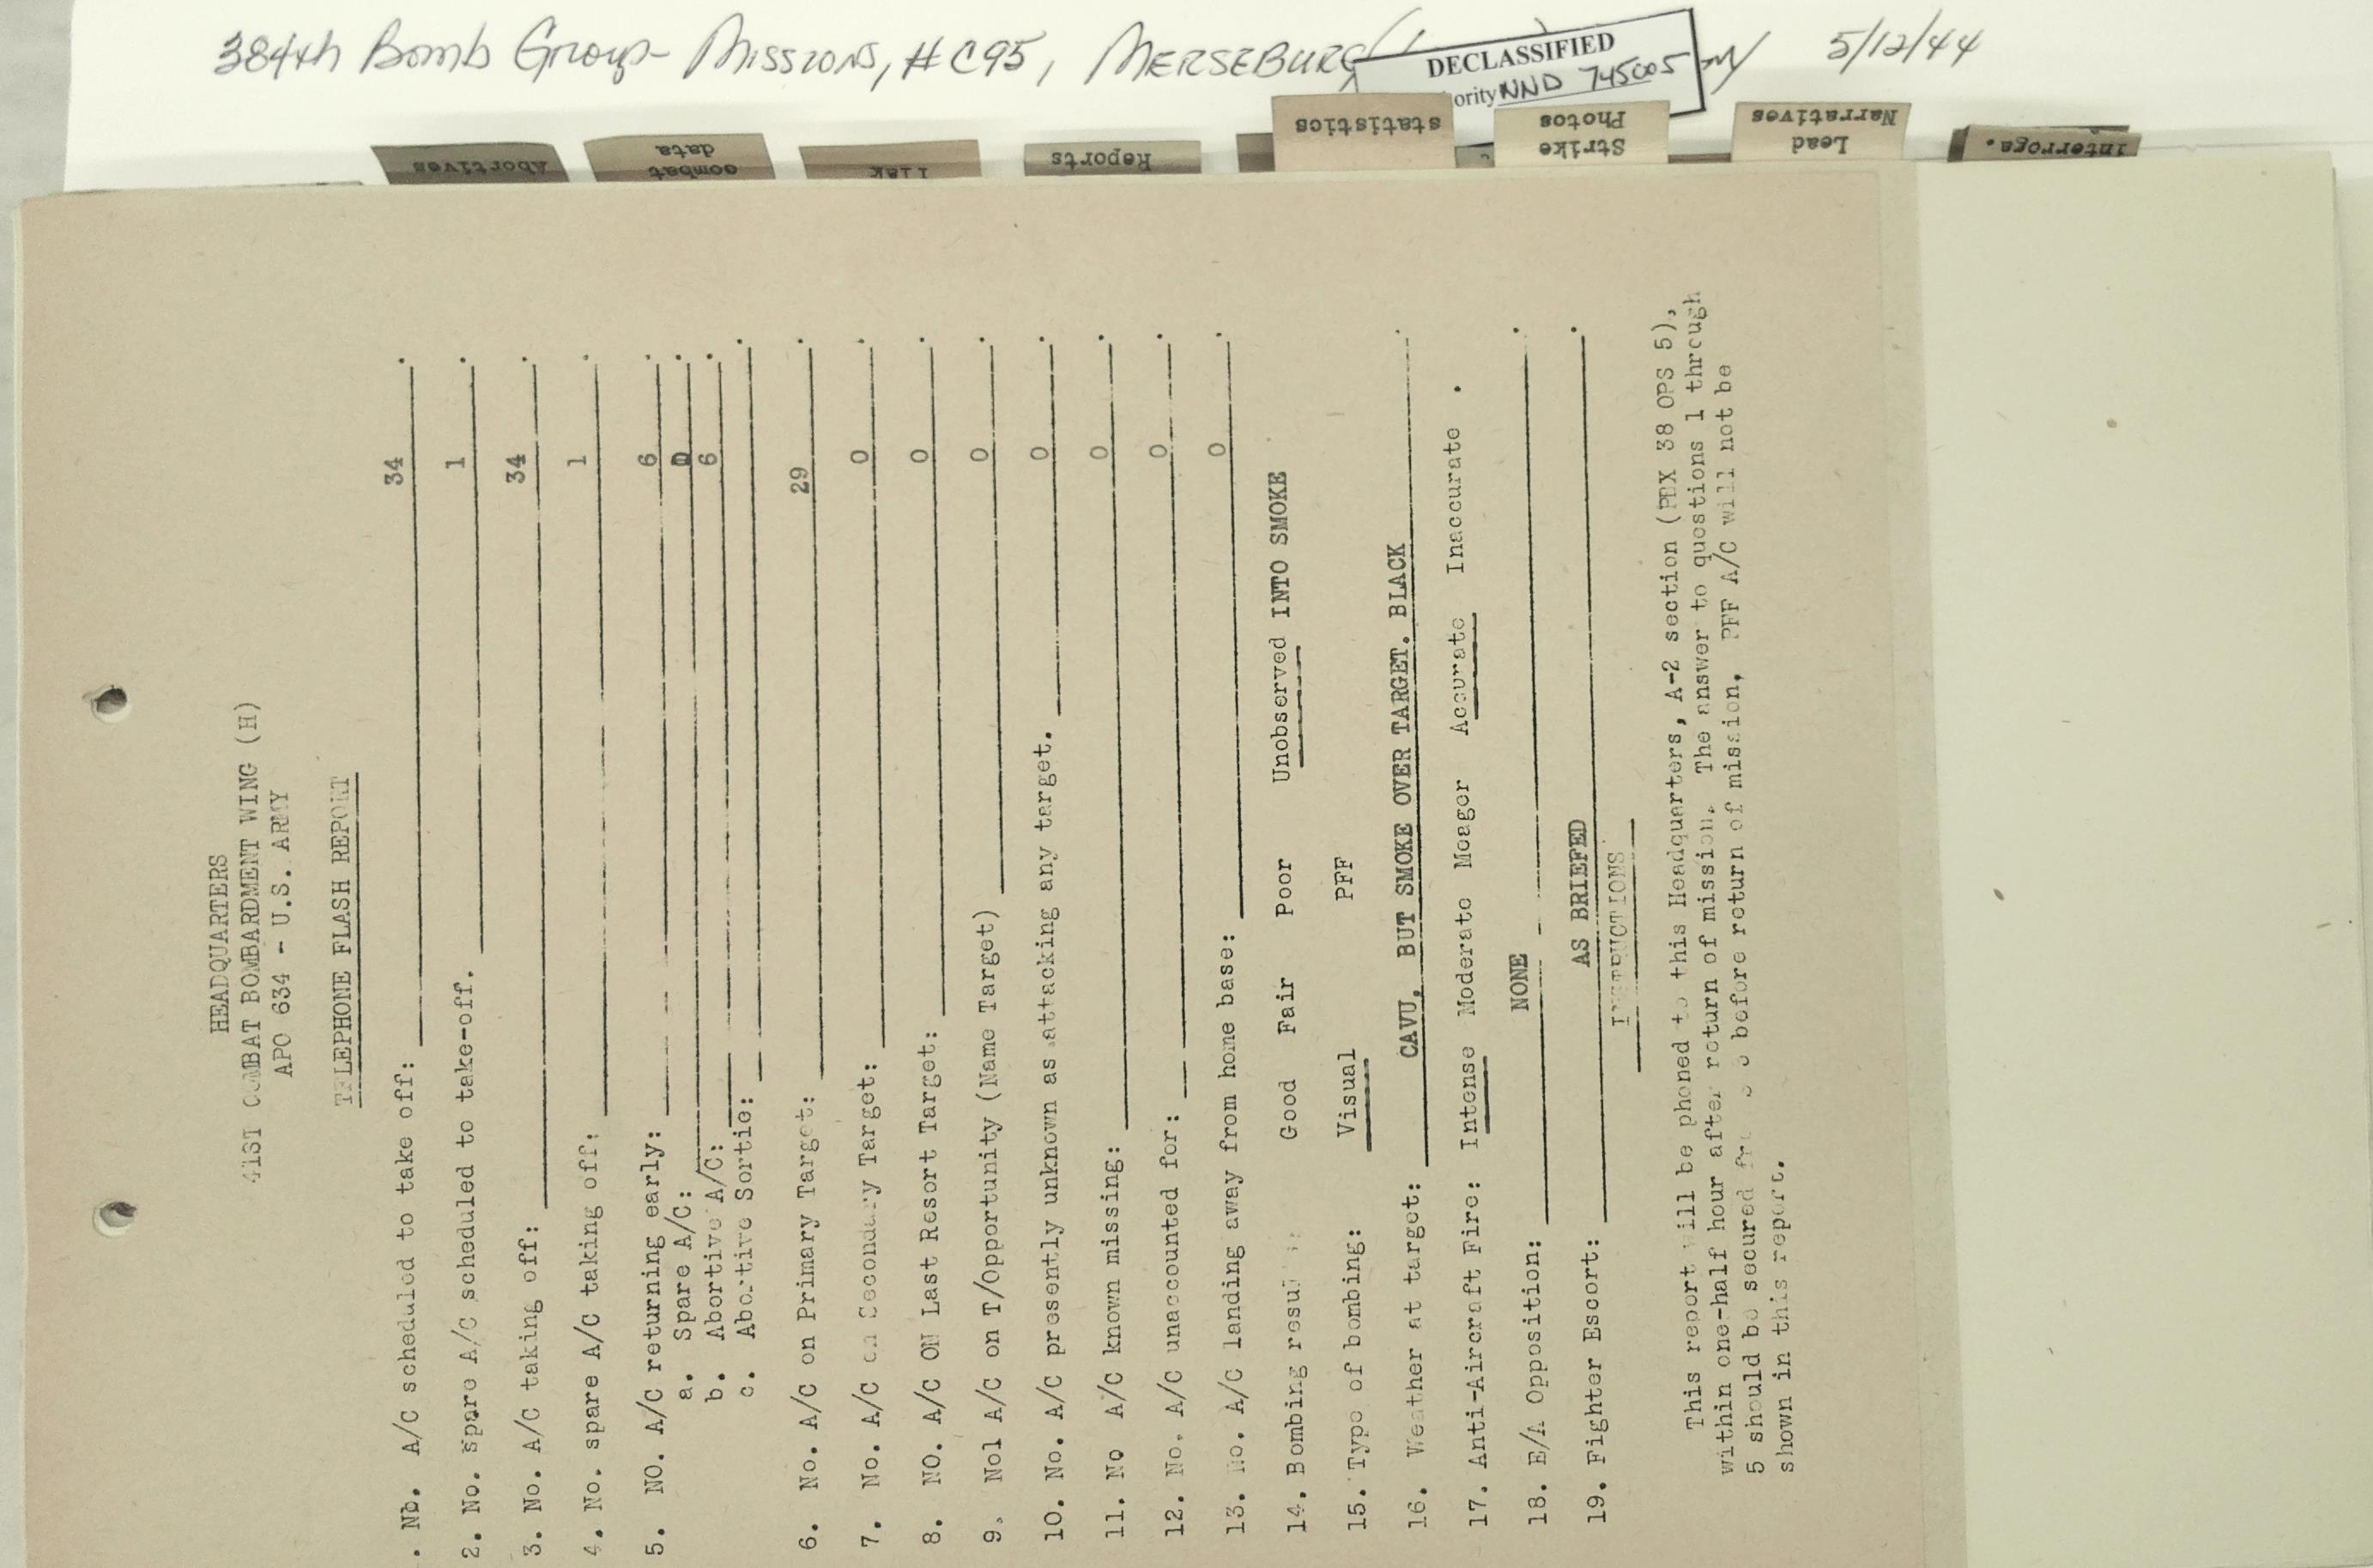 384th Bomb Group - Missions, #C95, MERSEBURG 5/12/44
DECLASSIFIED
ority NND 745005
Abortives
combat
data
Reports
statistics
Strike
Photos
Lead
Narratives
interroga.
HEADQUARTERS
41ST COMBAT BOMBARDMENT WING (H)
APO 634 - U.S. ARMY
TELEPHONE FLASH REPORT
. No. A/C scheduled to take off: 34.
2. No. spare A/C scheduled to take-off. 1.
3. No. A/C taking off: 34.
4. No. spare A/C taking off: 1.
5. NO. A/C returning early: 6.
a. Spare A/C: 0.
b. Abortive A/C: 6.
c. Abortive Sortie: .
6. No. A/C on Primary Target: 29.
7. No. A/C on Secondary Target: 0.
8. NO. A/C ON Last Resort Target: 0.
9. Nol A/C on T/Opportunity (Name Target) 0.
10. No. A/C presently unknown as attacking any target. 0.
11. No A/C known missing: 0.
12. No. A/C unaccounted for: 0.
13. No. A/C landing away from home base: 0.
14. Bombing results: Good Fair Poor Unobserved INTO SMOKE
15. Type of bombing: Visual PFF
16. Weather at target: CAVU, BUT SMOKE OVER TARGET. BLACK.
17. Anti-Aircraft Fire: Intense Moderate Meager Accurate Inaccurate.
18. E/A Opposition: NONE.
19. Fighter Escort: AS BRIEFED.
INSTRUCTIONS
This report will be phoned to this Headquarters, A-2 section (PBX 38 OPS 5),
within one-half hour after return of mission. The answer to questions 1 through
5 should be secured before return of mission, PFF A/C will not be
shown in this report.